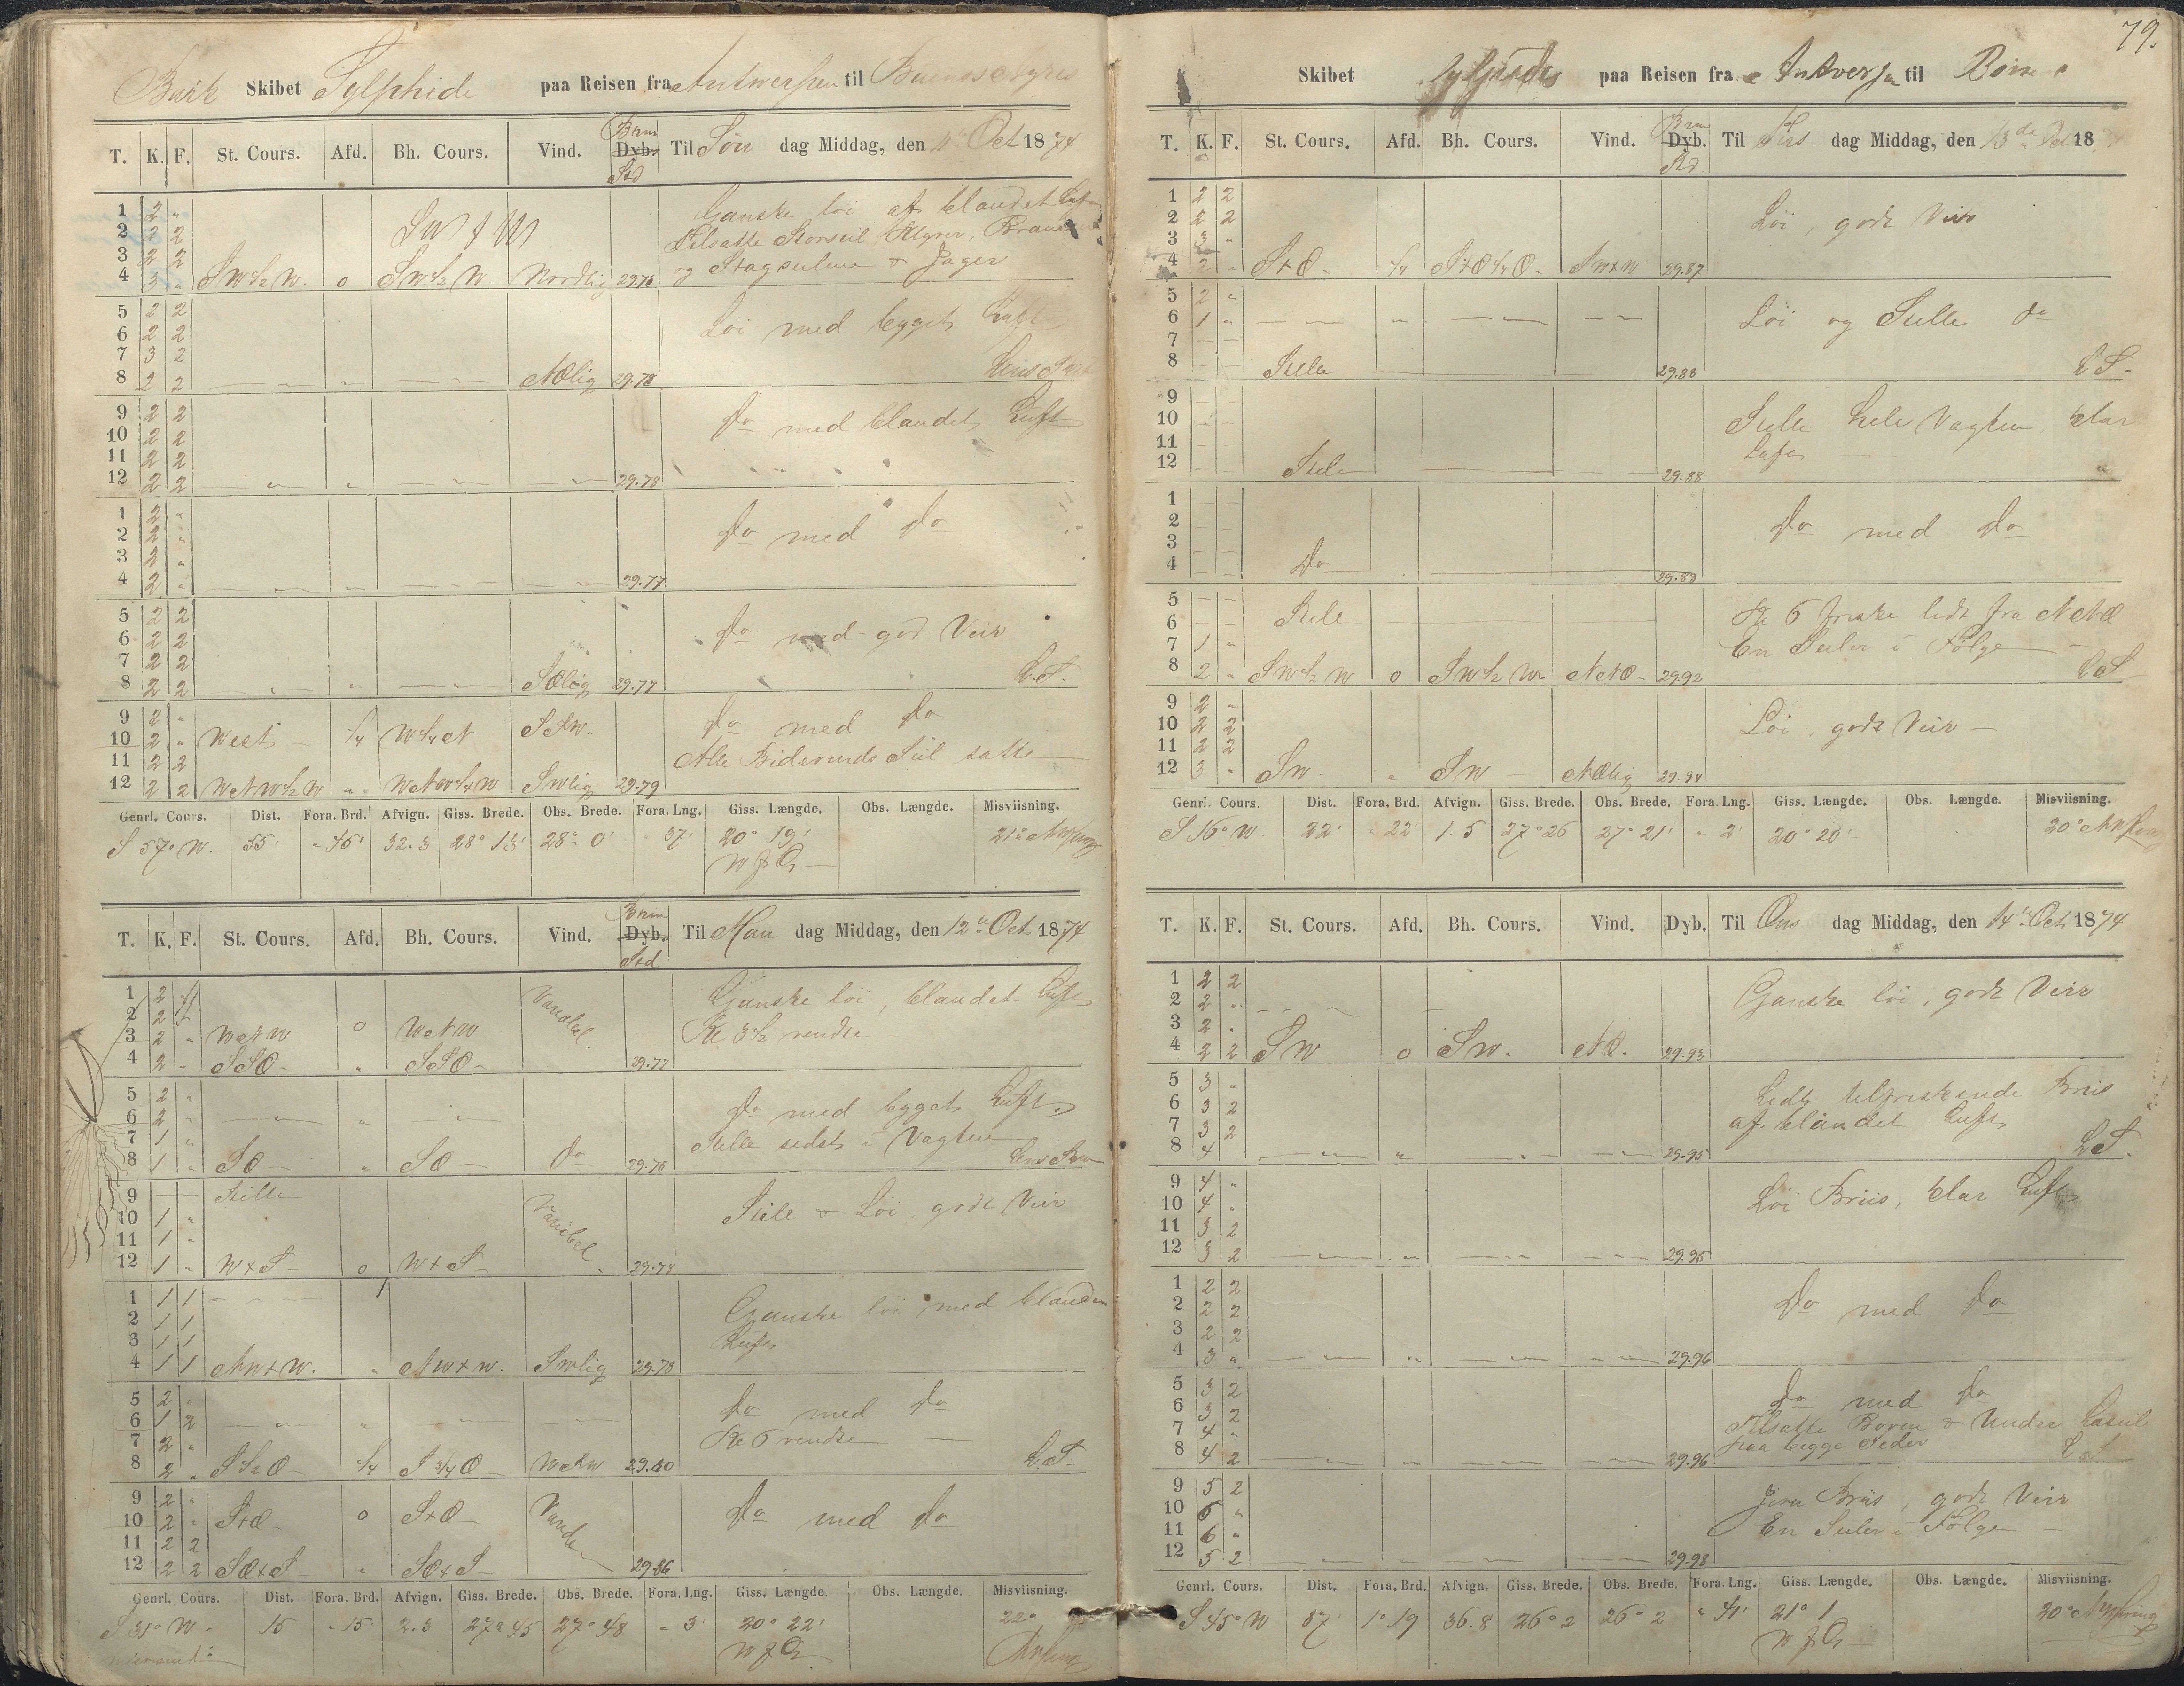 79.
Bark Skibet Sylphide paa Reisen fra Antwerpen til Buenos Ayres
T. K. F. St. Cours. Afd. Bh. Cours. Vind. Brm Dyb. Std Til Søn dag Middag, den 11te Oct 1874
1 2 "
2 2 2
3 2 2
4 3 " SW½W. 0 SW½W. Nordlig 29.78
Ganske löi af blandet Luft
Tilsatte Storseil
og Stagseilene & Jager
5 2 2
6 2 2
7 3 2
8 2 2 — " — " — " — NOlig 29.78
Löi med bygget Luft
9 2 2
10 2 2
11 2 2
12 2 2 — " — " — " — — " — 29.78
Do med blandet Luft
1 2 "
2 2 "
3 2 "
4 2 " — " — " — " — — " — 29.77
Do med Do
5 2 2
6 2 2
7 2 2
8 2 2 — " — " — " — SOlig 29.77
Do med god Veir
L.S.
9 2 "
10 2 " West ¼ W¼N
11 2 2
12 2 2 WNW½W " WNW¼W SWlig 29.79
Do med Do
Alle Bidevinds Seil satte
Genrl. Cours. Dist. Fora. Brd. Afvign. Giss. Brede. Obs. Brede. Fora. Lng. Giss. Længde. Obs. Længde. Misviisning.
S 57° W. 55' " 45' 32.3 28° 13' 28° 0' " 37' 20° 19' 21°
T. K. F. St. Cours. Afd. Bh. Cours. Vind. Brm Dyb. Std Til Man dag Middag, den 12te Oct 1874
1 2
2 2
3 2 " WNW 0 WNW
4 2 " SSO " SSO 29.77
Ganske löi, blandet Luft
Kl 3½ vendte
5 2 "
6 2 " — " — " — " —
7 1 "
8 1 " SO " SO Do 29.78
Do med bygget Luft
Stille sidst i Vagten
9 — — Stille
10 1 "
11 1 "
12 1 " WxS 0 WxS 29.78
Stille & Löi godt Veir
1 1 1 — — —
2 1 1
3 1 1
4 1 1 NWxW. " NWxW. SWlig 29.78
Ganske löi med blandet
Luft
5 2 "
6 1 2 — " — " — " — — " —
7 2 "
8 2 " S½O ¼ S¾O WNW 29.80
Do med Do
Kl 6 vendte
L.S.
9 2 "
10 2 " SxO 0 SxO
11 2 2
12 2 2 SOxS " SOxS 29.86
Do med Do
Genrl. Cours. Dist. Fora. Brd. Afvign. Giss. Brede. Obs. Brede. Fora. Lng. Giss. Længde. Obs. Længde. Misviisning.
S 31° W. 15 " 15 2.3 27° 45 27° 48 " 3' 20° 22' 22°
Skibet Sylphide paa Reisen fra Antverpn til
T. K. F. St. Cours. Afd. Bh. Cours. Vind. Brm Dyb. Std. Til Tirs dag Middag, den 13de Oct 18
1 2 2
2 2 2
3 3 "
4 2 " SxO ¼ SxO¼O SWxW 29.87
Löi, godt Veir
5 2 "
6 1 " — — " — " — — —
7 — —
8 — — Stille 29.88
Löi og Stille Do
L.S.
9 — —
10 — —
11 — —
12 — — Stille 29.88
Stille hele Vagten klar
Luft
1 — —
2 — —
3
4 — — Do 29.89
Do med Do
5 — —
6 — — Stille
7 1 "
8 2 " SW½W 0 SW½W NNO 29.92
Kl 6 friske lidt fra NNO
En Seiler i Følge
L.S.
9 2 "
10 2 2
11 2 2
12 3 " SW. " SW NOlig 29.94
Löi, godt Veir
Genrl. Cours. Dist. Fora. Brd. Afvign. Giss. Brede. Obs. Brede. Fora. Lng. Giss. Længde. Obs. Længde. Misviisning.
S 16° W. 22' " 22' 1.5 27° 26 27° 21' " 2' 20° 20' 20°
T. K. F. St. Cours. Afd. Bh. Cours. Vind. Dyb. Til Ons dag Middag, den 14te Oct 1874
1 2 2
2 2 "
3 2 "
4 2 2 SW 0 SW. NO. 29.93
Ganske löi, godt Veir
5 3 "
6 3 2
7 3 2
8 4 — " — " — " — — " — 29.95
Lidt tilfriskende Briis
af blandet Luft
L.S.
9 4 "
10 4 "
11 3 2
12 3 2 — " — " — " — — " — 29.95
Löi Briis, klar Luft
1 2 2
2 2 2
3 2 2
4 3 " — " — " — " — — " — 29.96
Do med Do
5 3 2
6 3 2
7 4 "
8 4 2 — " — " — " — — " — 29.96
Do med Do
Tilsatte Boven & Under Læseil
paa begge Sider
L.S.
9 5 2
10 6 "
11 6 "
12 5 2 — " — " — " — — " — 29.98
Jevn Briis, godt Veir
En Seiler i Følge
Genrl. Cours. Dist. Fora. Brd. Afvign. Giss. Brede. Obs. Brede. Fora. Lng. Giss. Længde. Obs. Længde. Misviisning.
S 45° W 87 1° 19 36.8 26° 2 26° 2 " 41' 21° 1 20°